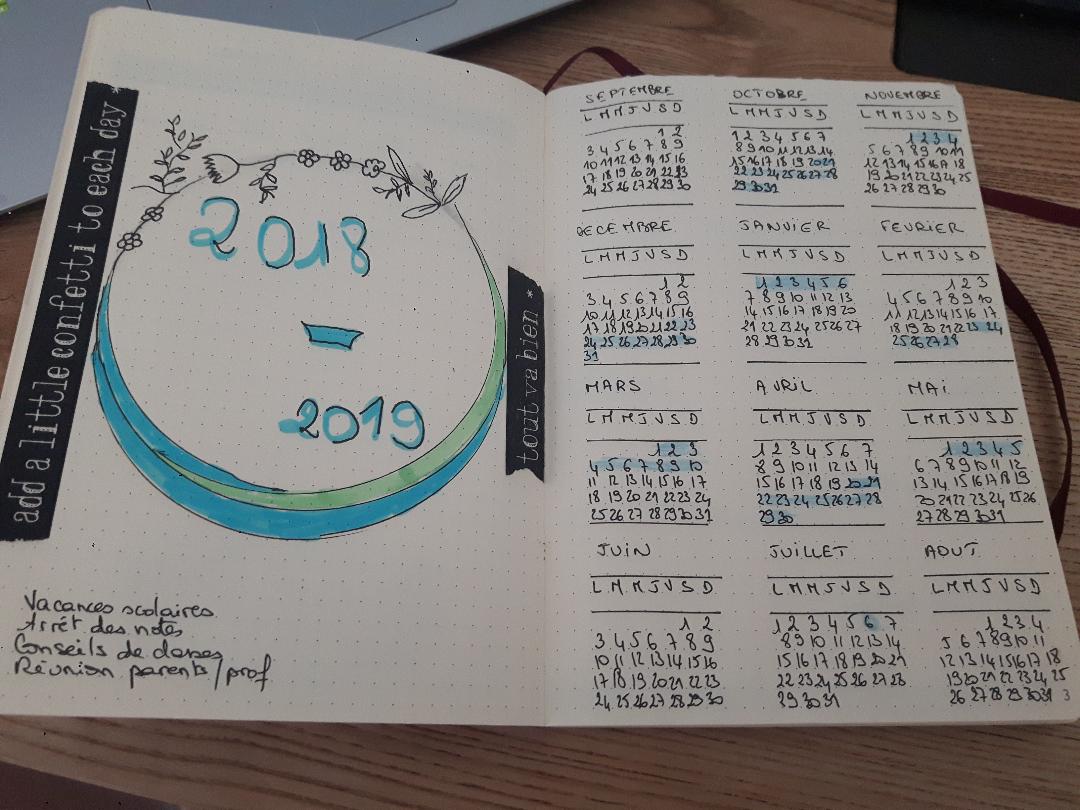 add a little confetti to each day *
2018
-
2019
tout va bien *
Vacances scolaires
Arrêt des notes
Conseils de classes
Réunion parents/prof
SEPTEMBRE
L M M J V S D
1 2
3 4 5 6 7 8 9
10 11 12 13 14 15 16
17 18 19 20 21 22 23
24 25 26 27 28 29 30
OCTOBRE
L M M J V S D
1 2 3 4 5 6 7
8 9 10 11 12 13 14
15 16 17 18 19 20 21
22 23 24 25 26 27 28
29 30 31
NOVEMBRE
L M M J V S D
1 2 3 4
5 6 7 8 9 10 11
12 13 14 15 16 17 18
19 20 21 22 23 24 25
26 27 28 29 30
DECEMBRE
L M M J V S D
1 2
3 4 5 6 7 8 9
10 11 12 13 14 15 16
17 18 19 20 21 22 23
24 25 26 27 28 29 30
31
JANVIER
L M M J V S D
1 2 3 4 5 6
7 8 9 10 11 12 13
14 15 16 17 18 19 20
21 22 23 24 25 26 27
28 29 30 31
FEVRIER
L M M J V S D
1 2 3
4 5 6 7 8 9 10
11 12 13 14 15 16 17
18 19 20 21 22 23 24
25 26 27 28
MARS
L M M J V S D
1 2 3
4 5 6 7 8 9 10
11 12 13 14 15 16 17
18 19 20 21 22 23 24
25 26 27 28 29 30 31
AVRIL
L M M J V S D
1 2 3 4 5 6 7
8 9 10 11 12 13 14
15 16 17 18 19 20 21
22 23 24 25 26 27 28
29 30
MAI
L M M J V S D
1 2 3 4 5
6 7 8 9 10 11 12
13 14 15 16 17 18 19
20 21 22 23 24 25 26
27 28 29 30 31
JUIN
L M M J V S D
1 2
3 4 5 6 7 8 9
10 11 12 13 14 15 16
17 18 19 20 21 22 23
24 25 26 27 28 29 30
JUILLET
L M M J V S D
1 2 3 4 5 6 7
8 9 10 11 12 13 14
15 16 17 18 19 20 21
22 23 24 25 26 27 28
29 30 31
AOUT
L M M J V S D
1 2 3 4
5 6 7 8 9 10 11
12 13 14 15 16 17 18
19 20 21 22 23 24 25
26 27 28 29 30 31
3